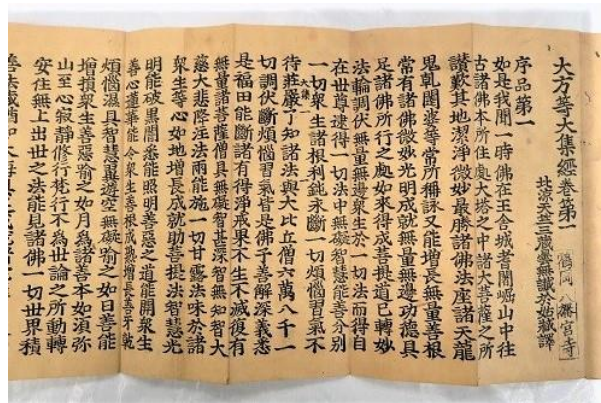 大方等大集經卷第一
鶴岡八幡宮寺
北涼天竺三藏曇無讖於姑臧譯
序品第一
如是我聞一時佛在王舍城耆闍崛山中往
古諸佛本所住處大塔之中諸大菩薩之所
讃歎其地潔淨微妙最勝諸佛法座諸天龍
鬼乹闥婆等常所稱詠又能增長無量善根
常有諸佛微妙光明成就無量無邊功德具
足諸佛所行之處如來得成菩提道已轉妙
法輪調伏無量無邊衆生於一切法而得自
在世尊逮得一切法中無礙智慧能善分别
一切衆生諸根利鈍永斷一切煩惱習氣不
大集一
待莊嚴了知諸法與大比丘僧六萬八千一
切調伏斷煩惱習氣皆是佛子善解深義悉
是福田能斷諸有得淨戒果不生不滅復有
無量諸菩薩僧具無礙智甚深智無知智大
慈大悲降注法雨能施一切甘露法味於諸
衆生等心如地增長成就助菩提法智慧光
明能破黒闇悉能照明善惡之道能開衆生
善心道華能令衆生善根成熟增長善牙乹
煩惱濕具智慧翼遊空無礙喻之如日善能
增損衆生善惡喻之如月爲諸善本如須弥
山至心寂靜修行梵行不爲世論之所動轉
安住無上出世之法能見諸佛一切世界積